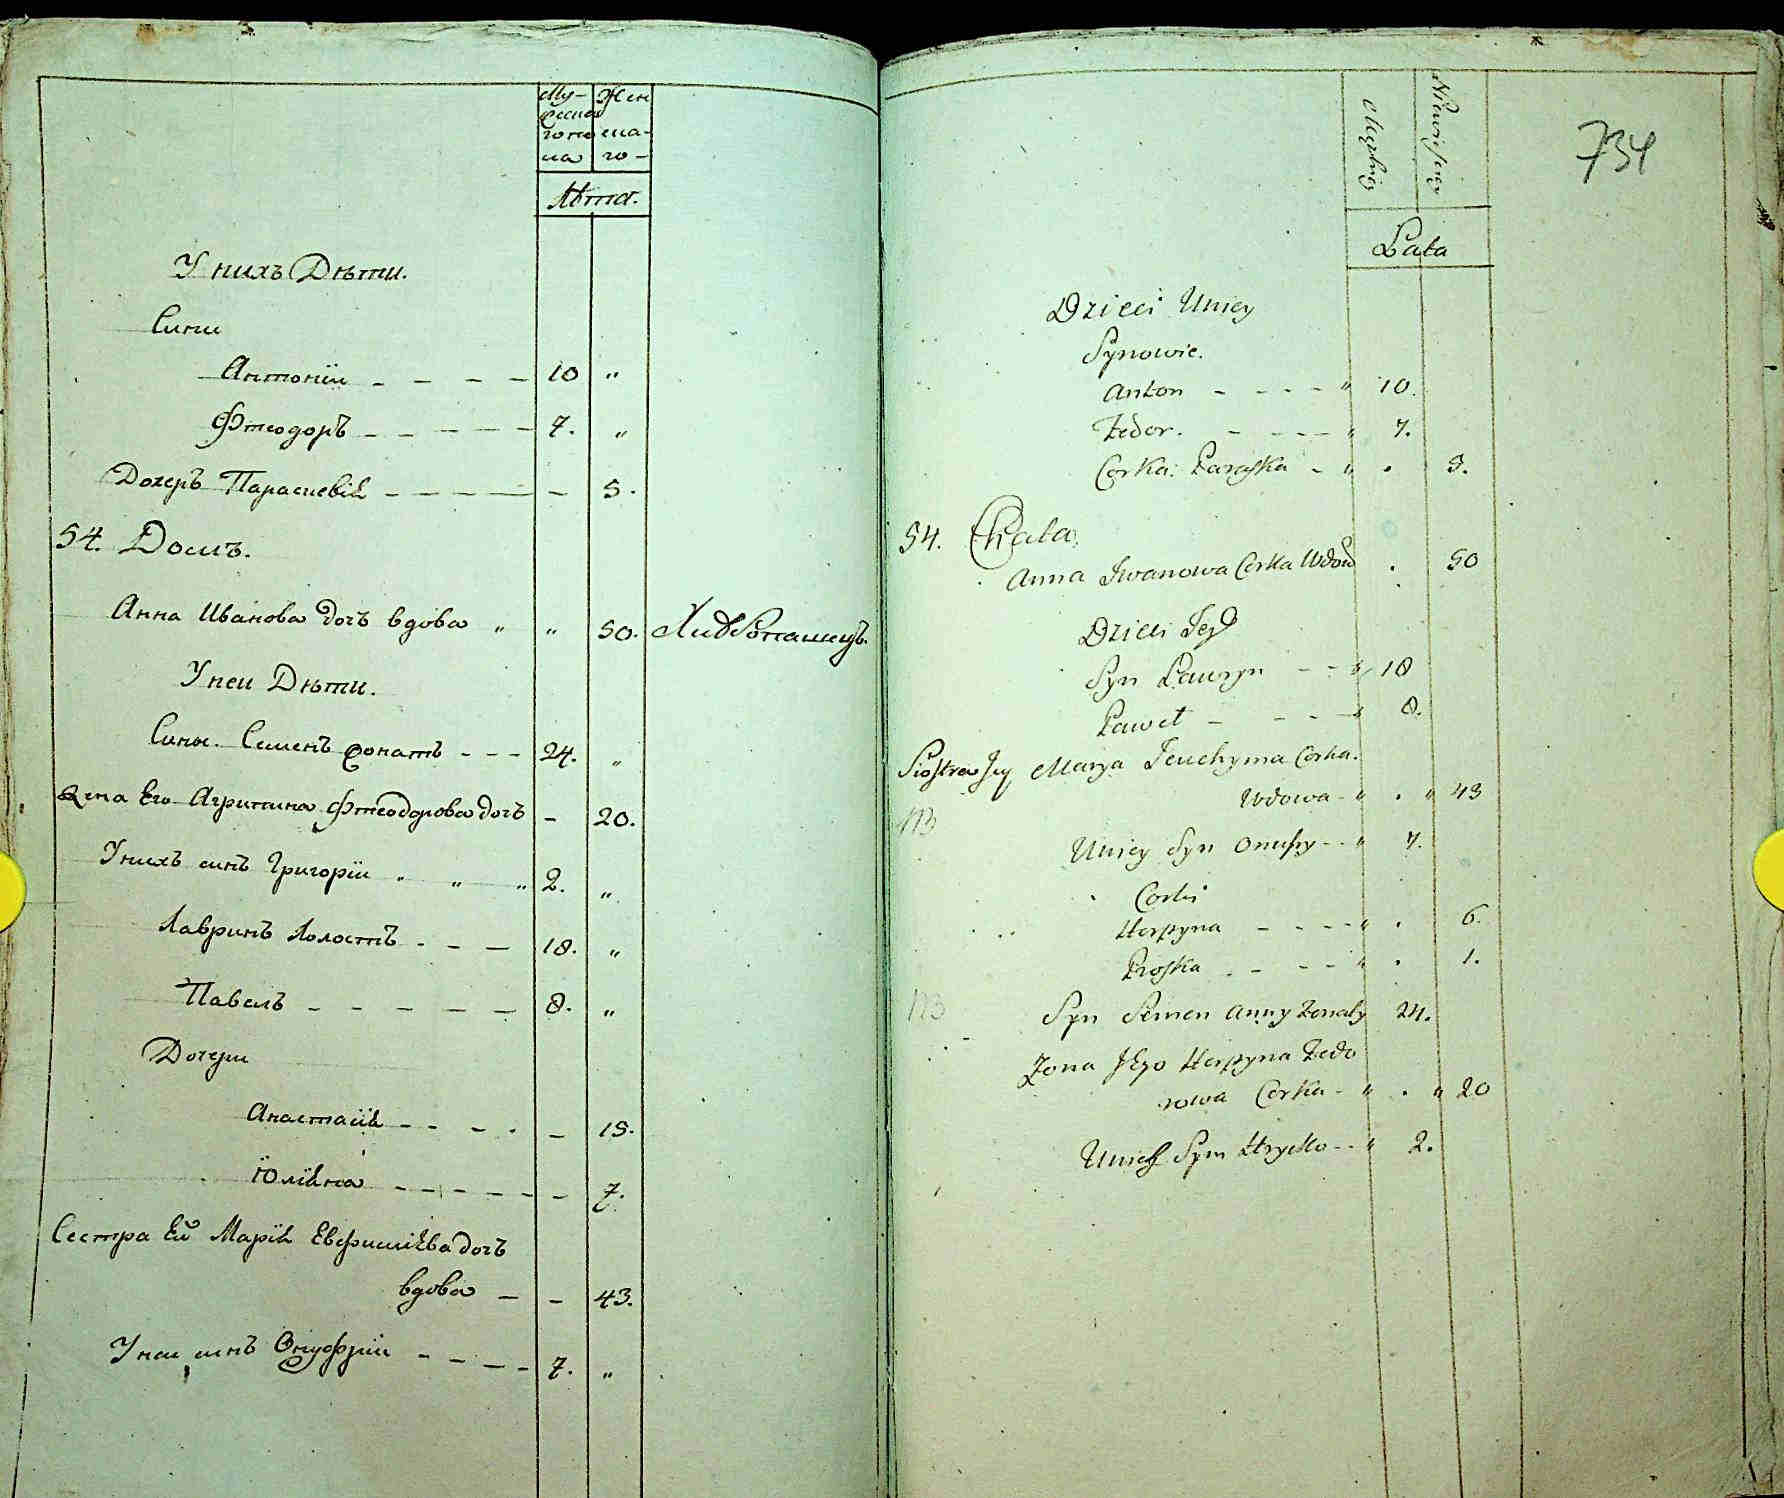 Му- Жен
ческа
го по ска-
ла го-
Лѣта.
У нихъ Дѣти.
Сини
Антоній - - - - 10 "
Фтеодоръ - - - - - 7. "
Дочеръ Параскевія - - - - - - 5.
54. Домъ.
Анна Иванова дочъ вдова " " 50.
У неи Дѣти.
Сины. Семенъ жонатъ - - - 24. "
Жена Его Агрипина Фтеодорова дочъ - 20.
У нихъ синъ Григорій " " " 2. "
Лавринъ холостъ - - - 18. "
Павелъ - - - - - 8. "
Дочери
Анастасія - - - - - 15.
Юліяна - - - - - - 7.
Сестра Ей Марія Евфиміева дочъ
вдова - - 43.
У неи синъ Онуфрій - - - - 7. "
734
Męzkiej
Niewiesciej
Lata
Dzieci Unich
Synowie.
Anton - - - - " 10.
Fedor. - - - - " 7.
Corka: Paraska - " . 5.
54. Chata.
Anna Iwanowa Corka Wdow . 50
Dzieci Jey
Syn Lawryn - - " 18
Paweł - - - - " 8.
Siostra Jey Marya Jeuchyma Corka.
Wdowa - " . " 43
NB
Uniey Syn Onufry - - " 7.
Corki
Horpyna - - - - " . 6.
Proska - - - - " . 1.
NB Syn Semen Anny Żonaty 24.
Żona Jego Horpyna Fedo
rowa Corka - " . " 20
Unich Syn Hryćko - - " 2.